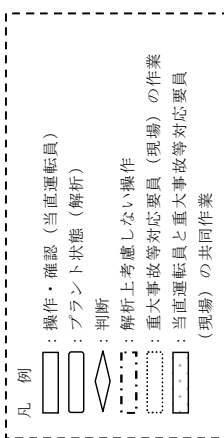 凡　例
：操作・確認（当直運転員）
：プラント状態（解析）
：判断
：解析上考慮しない操作
：重大事故等対応要員（現場）の作業
：当直運転員と重大事故等対応要員
（現場）の共同作業